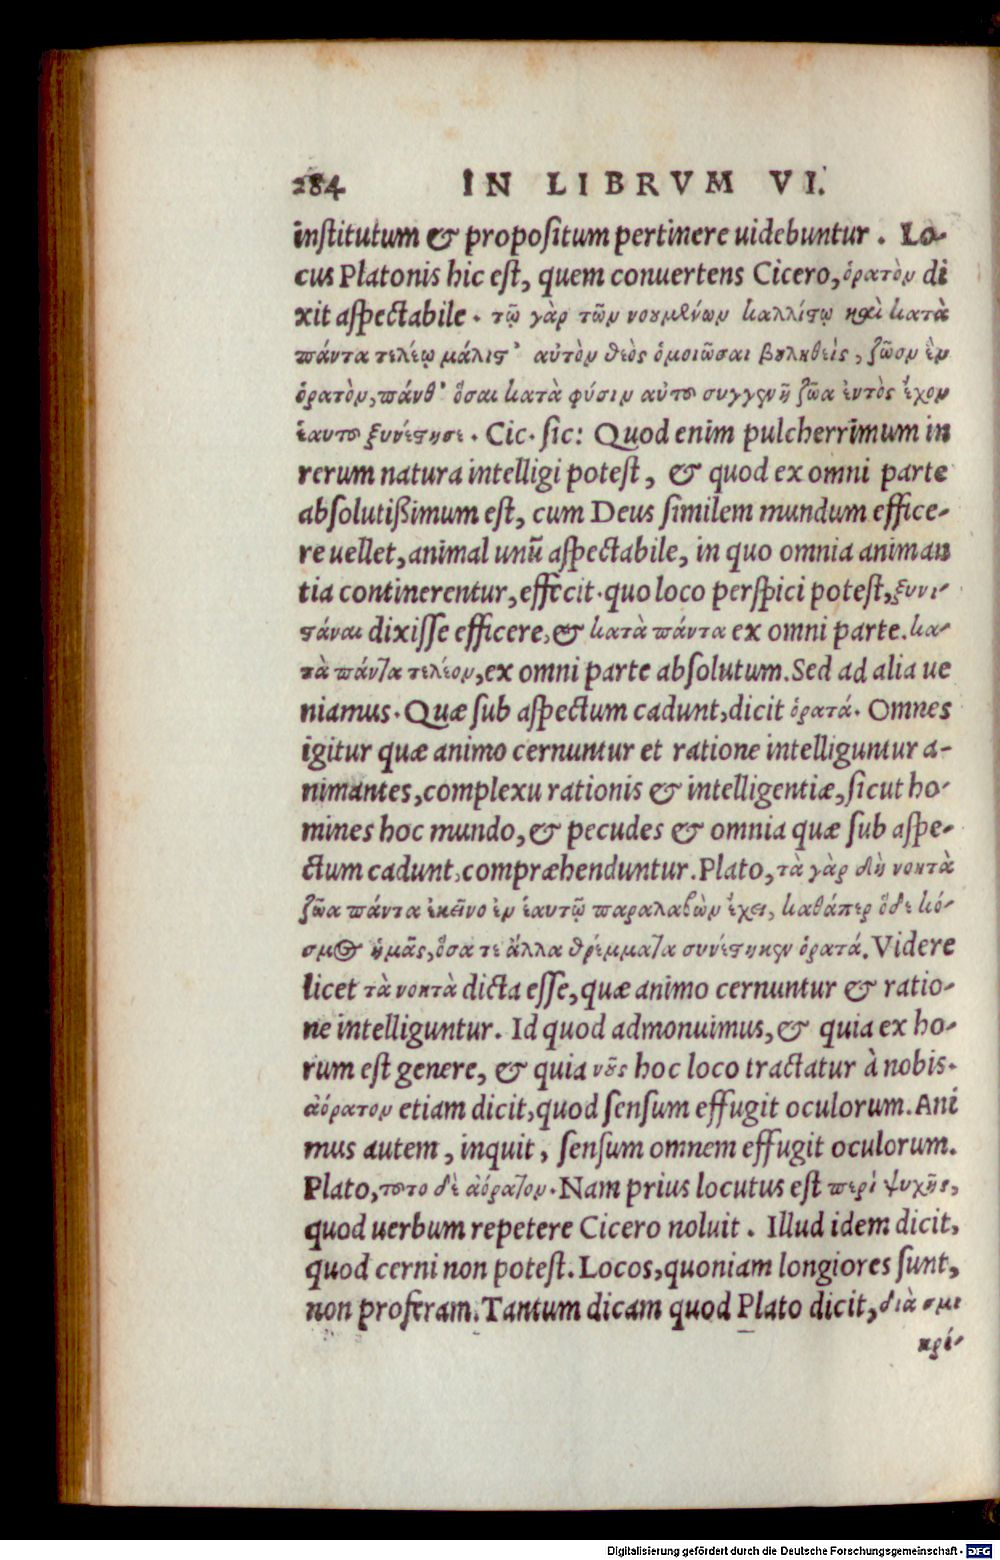 284 IN LIBRVM VI.
institutum & propositum pertinere uidebuntur. Lo-
cus Platonis hic est, quem conuertens Cicero, ὁρατὸν di
xit aspectabile. τῷ γὰρ τῶν νουμένων καλλίστῳ καὶ κατὰ
πάντα τελέῳ μάλιστ’ αὐτὸν θεὸς ὁμοιῶσαι βουληθεὶς, ζῶον ἓν
ὁρατὸν, πάνθ’ ὅσαι κατὰ φύσιν αὐτοῦ συγγενῆ ζῶα ἐντὸς ἔχον
ἑαυτοῦ ξυνέστησε. Cic. sic: Quod enim pulcherrimum in
rerum natura intelligi potest, & quod ex omni parte
absolutißimum est, cum Deus similem mundum effice-
re uellet, animal unũ aspectabile, in quo omnia animan
tia continerentur, effecit. quo loco perspici potest, ξυνι-
στάναι dixisse efficere, & κατὰ πάντα ex omni parte. κα-
τὰ πάντα τελέον, ex omni parte absolutum. Sed ad alia ue
niamus. Quæ sub aspectum cadunt, dicit ὁρατά. Omnes
igitur quæ animo cernuntur et ratione intelliguntur a-
nimantes, complexu rationis & intelligentiæ, sicut ho-
mines hoc mundo, & pecudes & omnia quæ sub aspe-
ctum cadunt, compræhenduntur. Plato, τὰ γὰρ δὴ νοητὰ
ζῶα πάντα ἐκεῖνο ἐν ἑαυτῷ παραλαβὼν ἔχει, καθάπερ ὅδε κό-
σμος ἡμᾶς, ὅσα τε ἄλλα θρέμματα συνέστηκεν ὁρατά. Videre
licet τὰ νοητὰ dicta esse, quæ animo cernuntur & ratio-
ne intelliguntur. Id quod admonuimus, & quia ex ho-
rum est genere, & quia νοῦς hoc loco tractatur à nobis.
ἀόρατον etiam dicit, quod sensum effugit oculorum. Ani
mus autem, inquit, sensum omnem effugit oculorum.
Plato, τοῦτο δὲ ἀόρατον. Nam prius locutus est περὶ ψυχῆς,
quod uerbum repetere Cicero noluit. Illud idem dicit,
quod cerni non potest. Locos, quoniam longiores sunt,
non proferam. Tantum dicam quod Plato dicit, διὰ σμι
κρό-
Digitalisierung gefördert durch die Deutsche Forschungsgemeinschaft - DFG